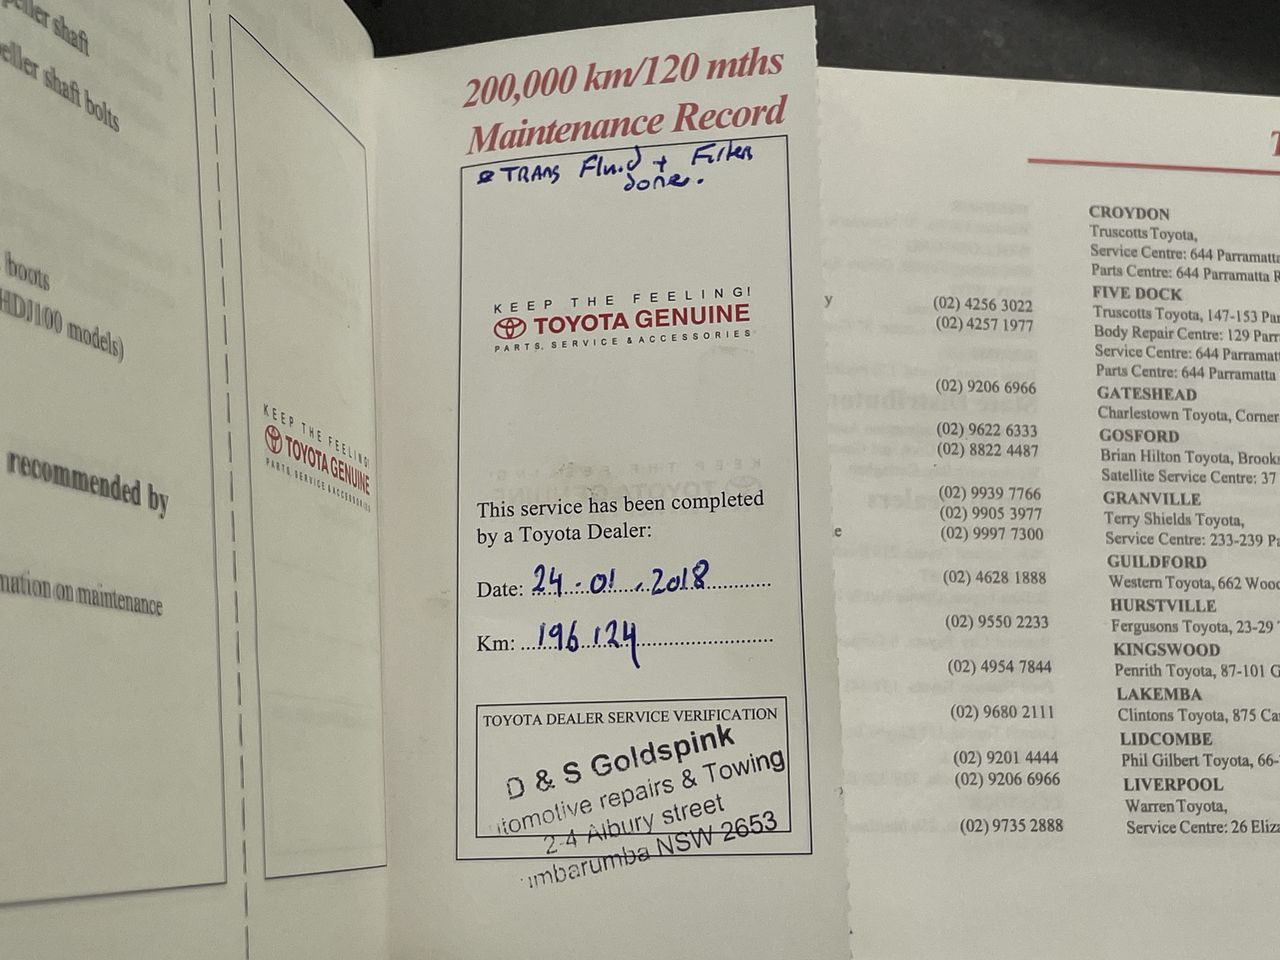 peller shaft
peller shaft bolts
boots
HDJ100 models)
recommended by
mation on maintenance
KEEP THE FEELING!
TOYOTA GENUINE
PARTS, SERVICE & ACCESSORIES
200,000 km/120 mths
Maintenance Record
TRANS Fluid + Filter
done.
KEEP THE FEELING!
TOYOTA GENUINE
PARTS, SERVICE & ACCESSORIES
This service has been completed
by a Toyota Dealer:
Date: 24.01.2018
Km: 196.124
TOYOTA DEALER SERVICE VERIFICATION
D & S Goldspink
utomotive repairs & Towing
2-4 Albury street
umbarumba NSW 2653
y
(02) 4256 3022
(02) 4257 1977
(02) 9206 6966
(02) 9622 6333
(02) 8822 4487
(02) 9939 7766
(02) 9905 3977
e (02) 9997 7300
(02) 4628 1888
(02) 9550 2233
(02) 4954 7844
(02) 9680 2111
(02) 9201 4444
(02) 9206 6966
(02) 9735 2888
T
CROYDON
Truscotts Toyota,
Service Centre: 644 Parramatta
Parts Centre: 644 Parramatta R
FIVE DOCK
Truscotts Toyota, 147-153 Par
Body Repair Centre: 129 Parr
Service Centre: 644 Parramatt
Parts Centre: 644 Parramatta
GATESHEAD
Charlestown Toyota, Corner
GOSFORD
Brian Hilton Toyota, Brooks
Satellite Service Centre: 37
GRANVILLE
Terry Shields Toyota,
Service Centre: 233-239 Pa
GUILDFORD
Western Toyota, 662 Wood
HURSTVILLE
Fergusons Toyota, 23-29
KINGSWOOD
Penrith Toyota, 87-101 G
LAKEMBA
Clintons Toyota, 875 Ca
LIDCOMBE
Phil Gilbert Toyota, 66-
LIVERPOOL
Warren Toyota,
Service Centre: 26 Eliza